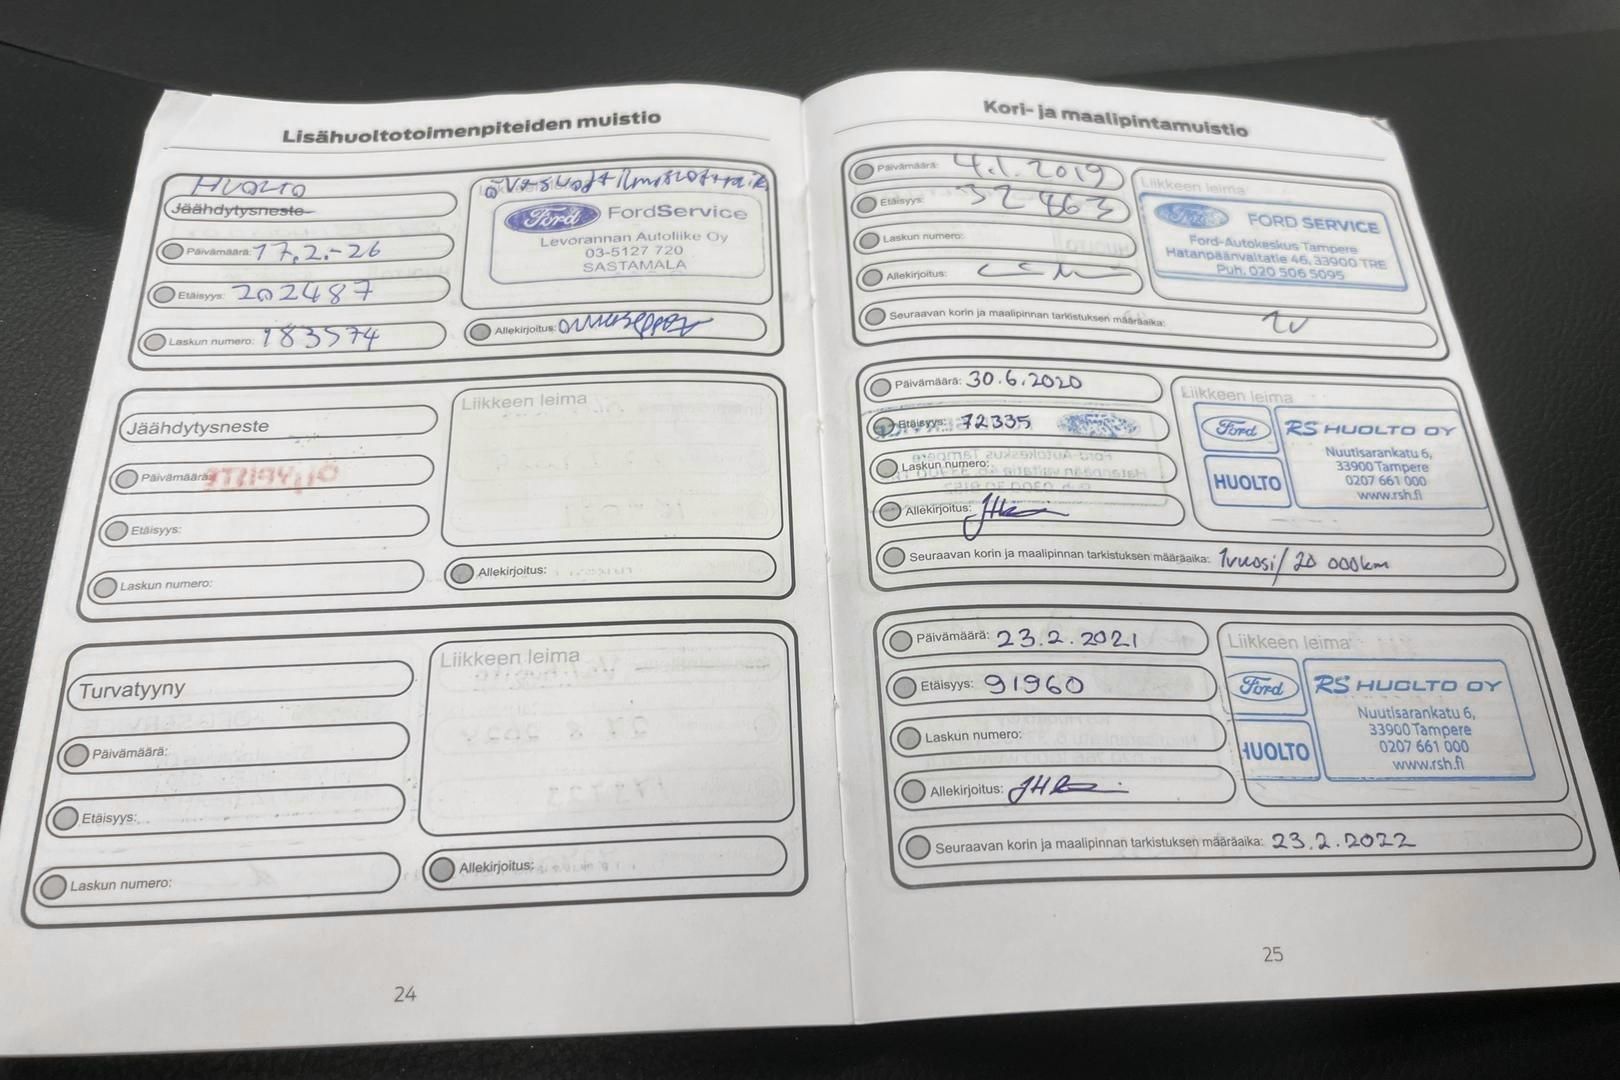 Lisähuoltotoimenpiteiden muistio
HUOLTO
Jäähdytysneste
Päivämäärä: 17.2.-26
Etäisyys: 202487
Laskun numero: 183574
Ford FordService
Levorannan Autoliike Oy
03-5127 720
SASTAMALA
Allekirjoitus:
Jäähdytysneste
Päivämäärä:
Etäisyys:
Laskun numero:
Liikkeen leima
Allekirjoitus:
Turvatyyny
Päivämäärä:
Etäisyys:
Laskun numero:
Liikkeen leima
Allekirjoitus:
24
Kori- ja maalipintamuistio
Päivämäärä: 4.1.2019
Etäisyys: 32463
Laskun numero:
Allekirjoitus:
Liikkeen leima
Ford FORD SERVICE
Ford-Autokeskus Tampere
Hatanpäänvaltatie 46, 33900 TRE
Puh. 020 506 5095
Seuraavan korin ja maalipinnan tarkistuksen määräaika: 1v
Päivämäärä: 30.6.2020
Etäisyys: 72335
Laskun numero:
Allekirjoitus:
Liikkeen leima
Ford RS HUOLTO OY
HUOLTO
Nuutisarankatu 6,
33900 Tampere
0207 661 000
www.rsh.fi
Seuraavan korin ja maalipinnan tarkistuksen määräaika: 1vuosi/20 000km
Päivämäärä: 23.2.2021
Etäisyys: 91960
Laskun numero:
Allekirjoitus:
Liikkeen leima
Ford RS HUOLTO OY
HUOLTO
Nuutisarankatu 6,
33900 Tampere
0207 661 000
www.rsh.fi
Seuraavan korin ja maalipinnan tarkistuksen määräaika: 23.2.2022
25